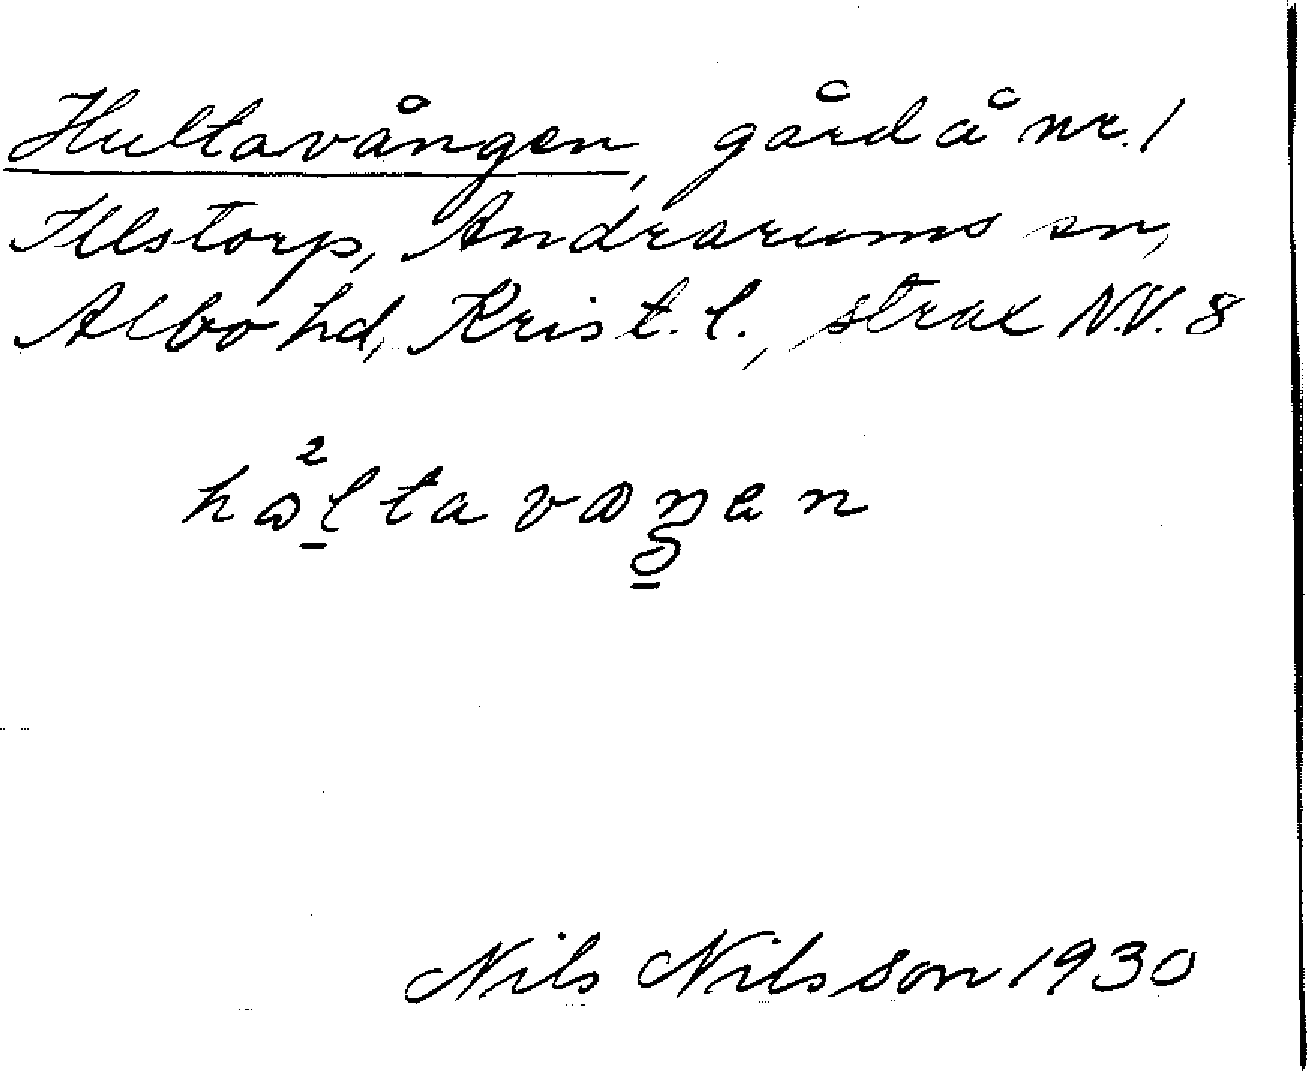 Hultavången, gård å nr. 1
Illstorp, Andrarums sn,
Albo hd, Krist. l., strax N.V. 8
Nils Nilsson 1930